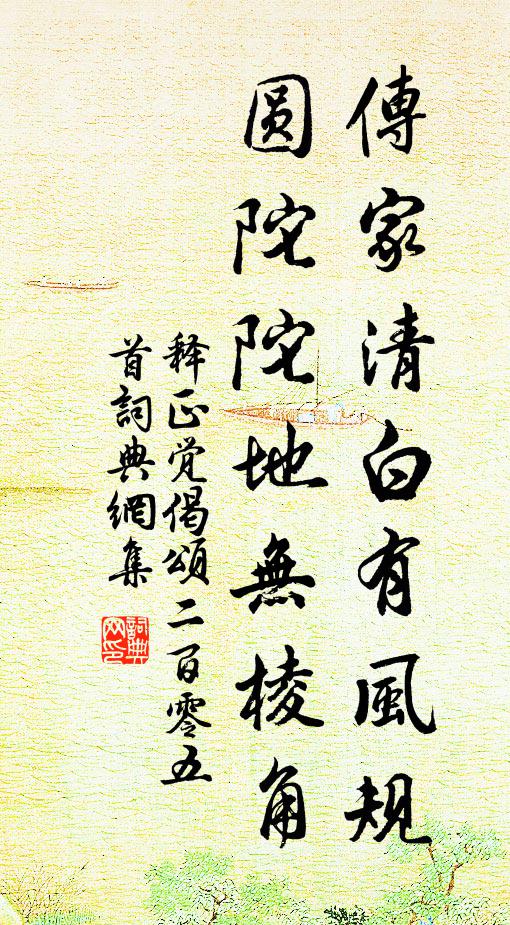 傳家清白有風規
圓陀陀地無棱角
释正觉偈頌二百零五
首詞典網集
詞典
网印